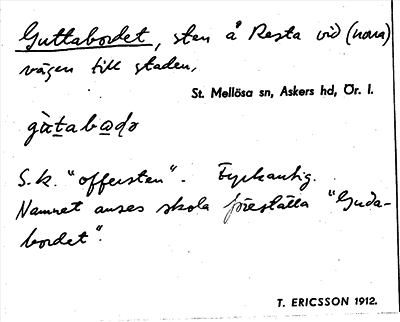 Guttabordet, sten å Resta vid (norra)
vägen till staden,
St. Mellösa sn, Askers hd, Ör. l.
gùtabωdə
S.k. "offersten". Fyrkantig.
Namnet anses skola föreställa "Guda-
bordet".
T. ERICSSON 1912.